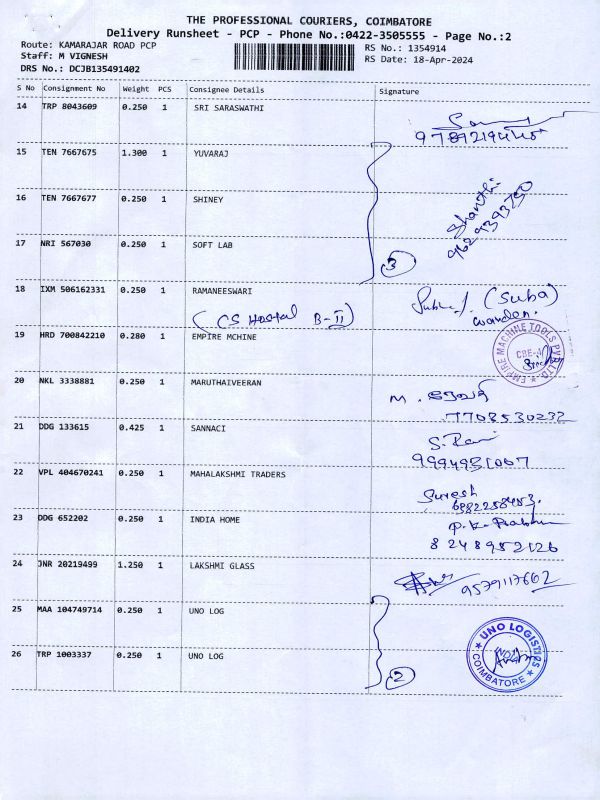 THE PROFESSIONAL COURIERS, COIMBATORE
Delivery Runsheet - PCP - Phone No.:0422-3505555 - Page No.:2
Route: KAMARAJAR ROAD PCP
Staff: M VIGNESH
DRS No.: DCJB135491402
RS No.: 1354914
RS Date: 18-Apr-2024
S No Consignment No Weight PCS Consignee Details Signature
14 TRP 8043609 0.250 1 SRI SARASWATHI
15 TEN 7667675 1.300 1 YUVARAJ
16 TEN 7667677 0.250 1 SHINEY
Shanthi
9629393750
17 NRI 567030 0.250 1 SOFT LAB
3
18 IXM 506162331 0.250 1 RAMANEESWARI
(CS Hostal B-II) (Suba)
warden.
19 HRD 700842210 0.280 1 EMPIRE MCHINE
EMPIRE MACHINE TOOLS PVT LTD.
CBE-4
20 NKL 3338881 0.250 1 MARUTHAIVEERAN
M. ரேவதி
7708530232
21 DDG 133615 0.425 1 SANNACI
S. Rani
9994951007
22 VPL 404670241 0.250 1 MAHALAKSHMI TRADERS
Suresh
23 DDG 652202 0.250 1 INDIA HOME
8248952126
24 JNR 20219499 1.250 1 LAKSHMI GLASS
9579117662
25 MAA 104749714 0.250 1 UNO LOG
UNO LOGISTICS
COIMBATORE
26 TRP 1003337 0.250 1 UNO LOG
2